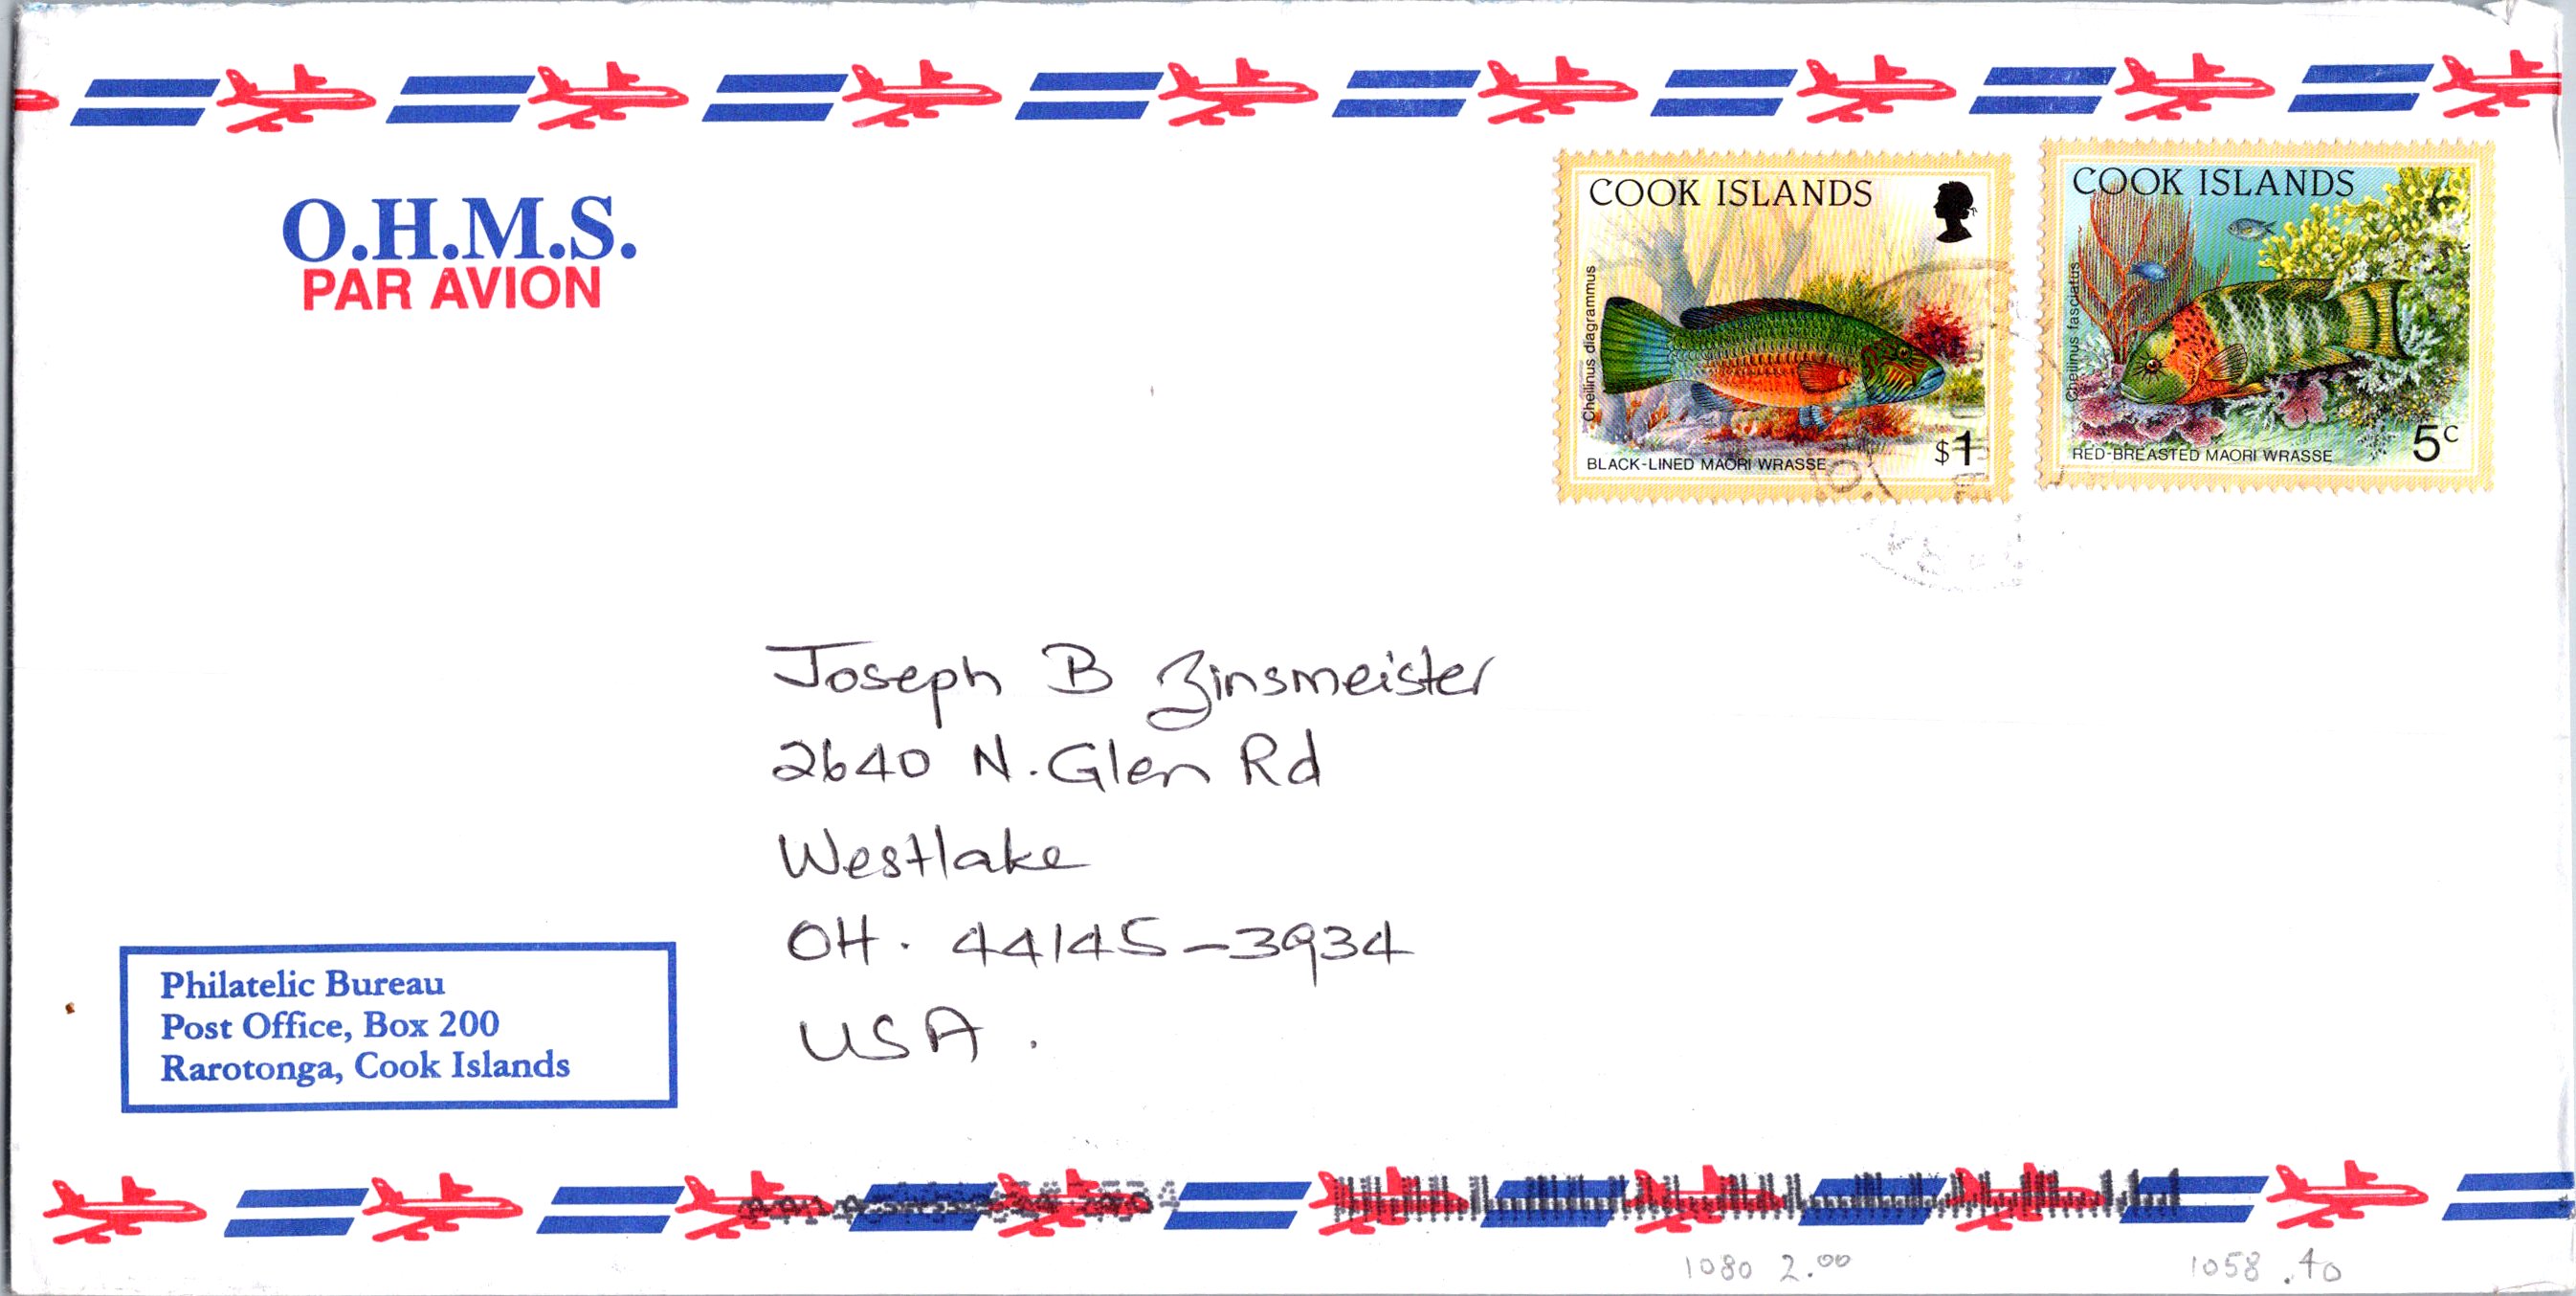 O.H.M.S.
PAR AVION
COOK ISLANDS
Cheilinus diagrammus
BLACK-LINED MAORI WRASSE
$1
COOK ISLANDS
Cheilinus fasciatus
RED-BREASTED MAORI WRASSE
5c
Joseph B Zinsmeister
2640 N. Glen Rd
Westlake
OH. 44145-3934
USA.
Philatelic Bureau
Post Office, Box 200
Rarotonga, Cook Islands
1080 2.00
1058 .40